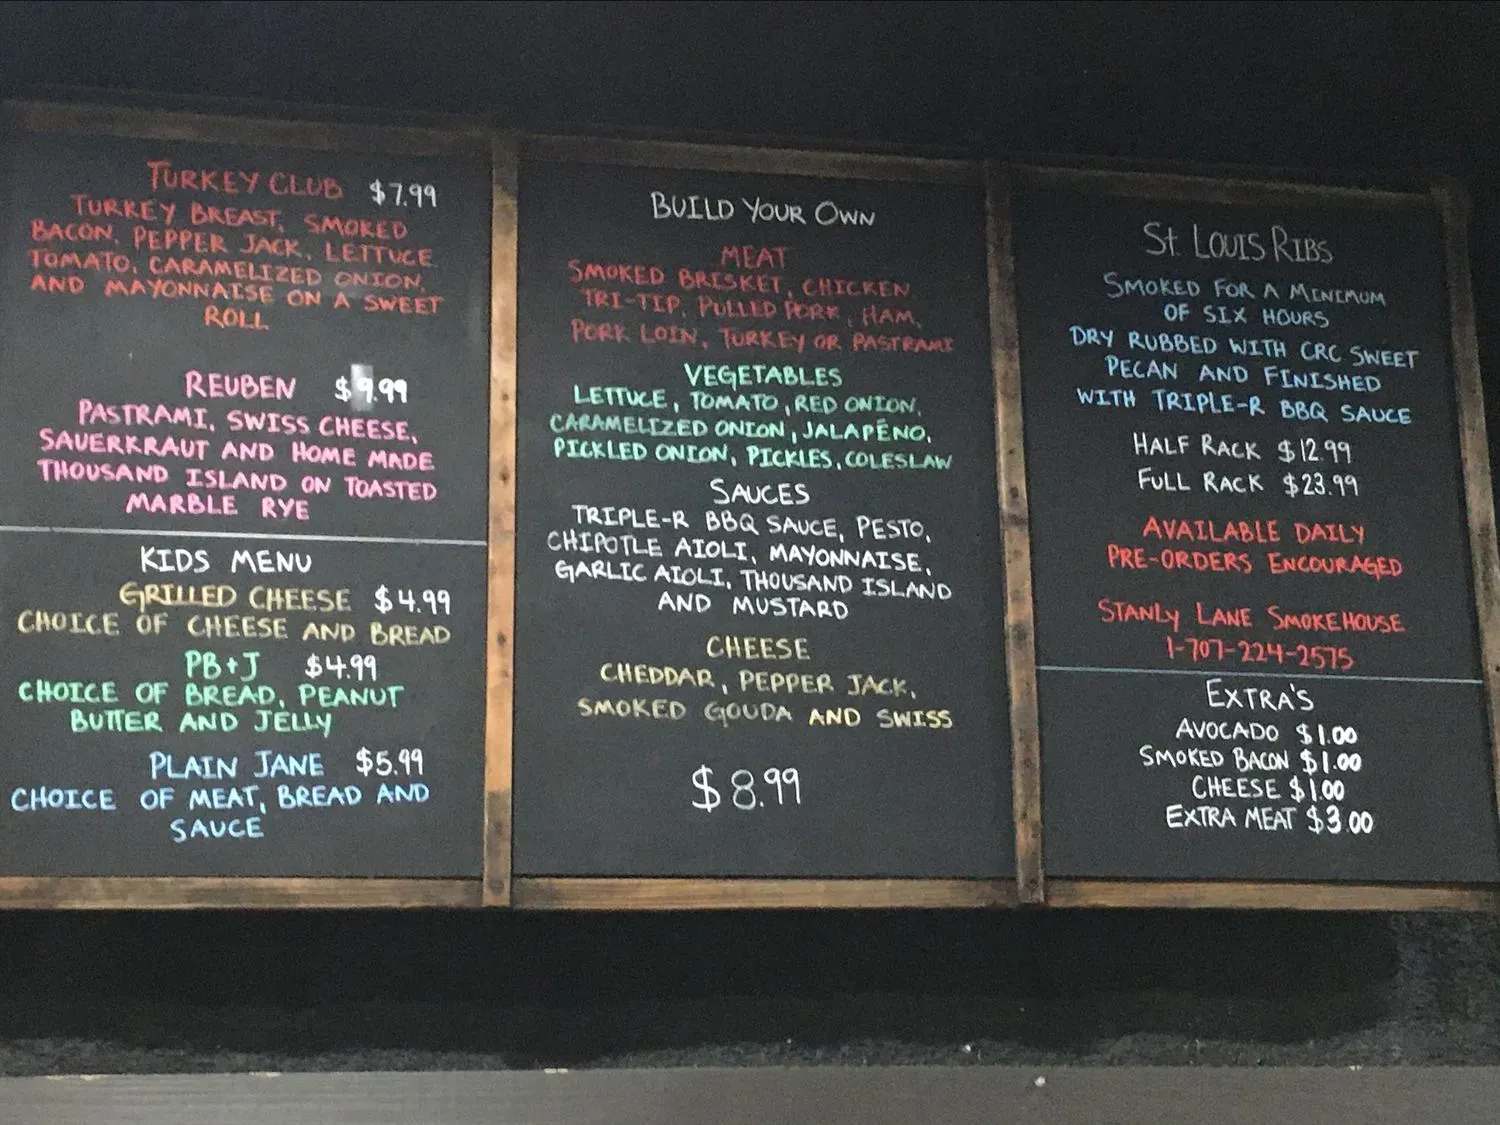 TURKEY CLUB $7.99
TURKEY BREAST, SMOKED
BACON, PEPPER JACK, LETTUCE
TOMATO, CARAMELIZED ONION,
AND MAYONNAISE ON A SWEET
ROLL
REUBEN $9.99
PASTRAMI, SWISS CHEESE,
SAUERKRAUT AND HOME MADE
THOUSAND ISLAND ON TOASTED
MARBLE RYE
KIDS MENU
GRILLED CHEESE $4.99
CHOICE OF CHEESE AND BREAD
PB+J $4.99
CHOICE OF BREAD, PEANUT
BUTTER AND JELLY
PLAIN JANE $5.99
CHOICE OF MEAT, BREAD AND
SAUCE
BUILD YOUR OWN
MEAT
SMOKED BRISKET, CHICKEN,
TRI-TIP, PULLED PORK, HAM,
PORK LOIN, TURKEY OR PASTRAMI
VEGETABLES
LETTUCE, TOMATO, RED ONION,
CARAMELIZED ONION, JALAPEÑO,
PICKLED ONION, PICKLES, COLESLAW
SAUCES
TRIPLE-R BBQ SAUCE, PESTO,
CHIPOTLE AIOLI, MAYONNAISE,
GARLIC AIOLI, THOUSAND ISLAND
AND MUSTARD
CHEESE
CHEDDAR, PEPPER JACK,
SMOKED GOUDA AND SWISS
$8.99
ST. LOUIS RIBS
SMOKED FOR A MINIMUM
OF SIX HOURS
DRY RUBBED WITH CRC SWEET
PECAN AND FINISHED
WITH TRIPLE-R BBQ SAUCE
HALF RACK $12.99
FULL RACK $23.99
AVAILABLE DAILY
PRE-ORDERS ENCOURAGED
STANLY LANE SMOKEHOUSE
1-707-224-2575
EXTRA'S
AVOCADO $1.00
SMOKED BACON $1.00
CHEESE $1.00
EXTRA MEAT $3.00